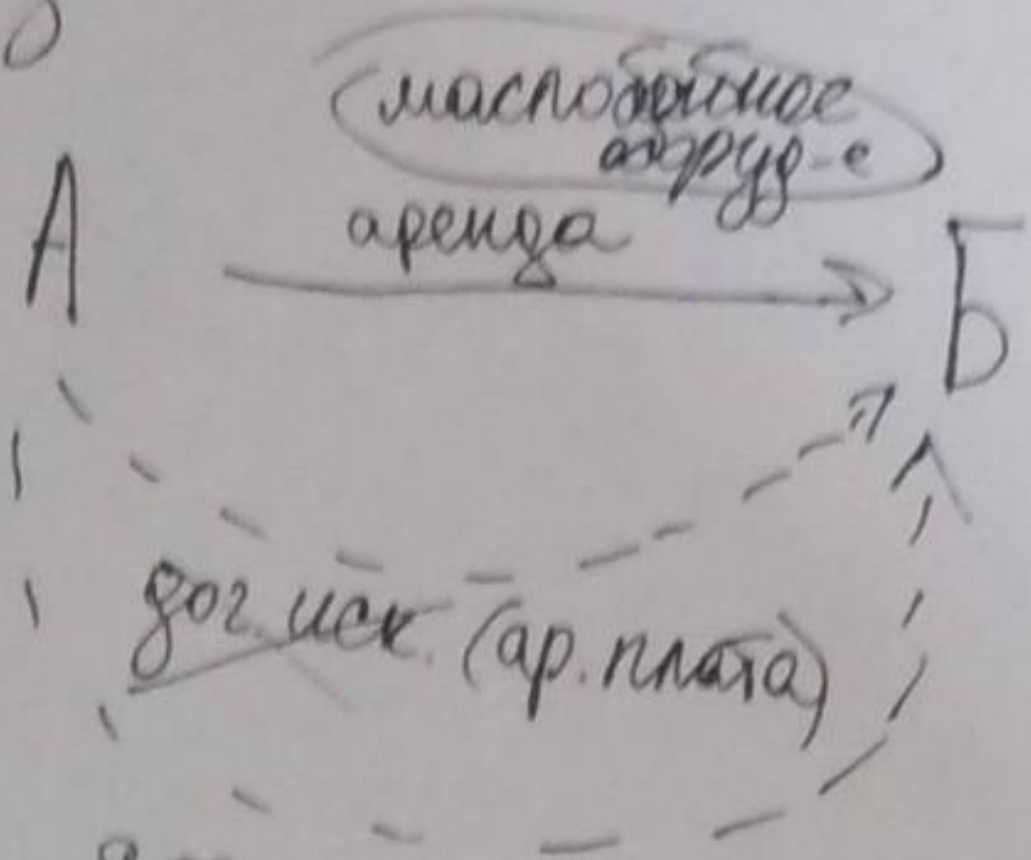 маслобойное
оборуд-е
А аренда Б
дог. иск. (ар. плата)